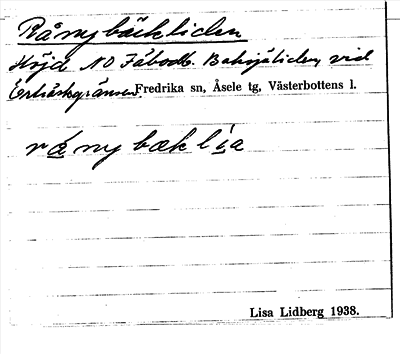 Rånybäckliden
Höjd NO Fäbodb. Baksjöliden, vid
Örträskgränsen. Fredrika sn, Åsele tg, Västerbottens l.
rånybæklía
Lisa Lidberg 1938.